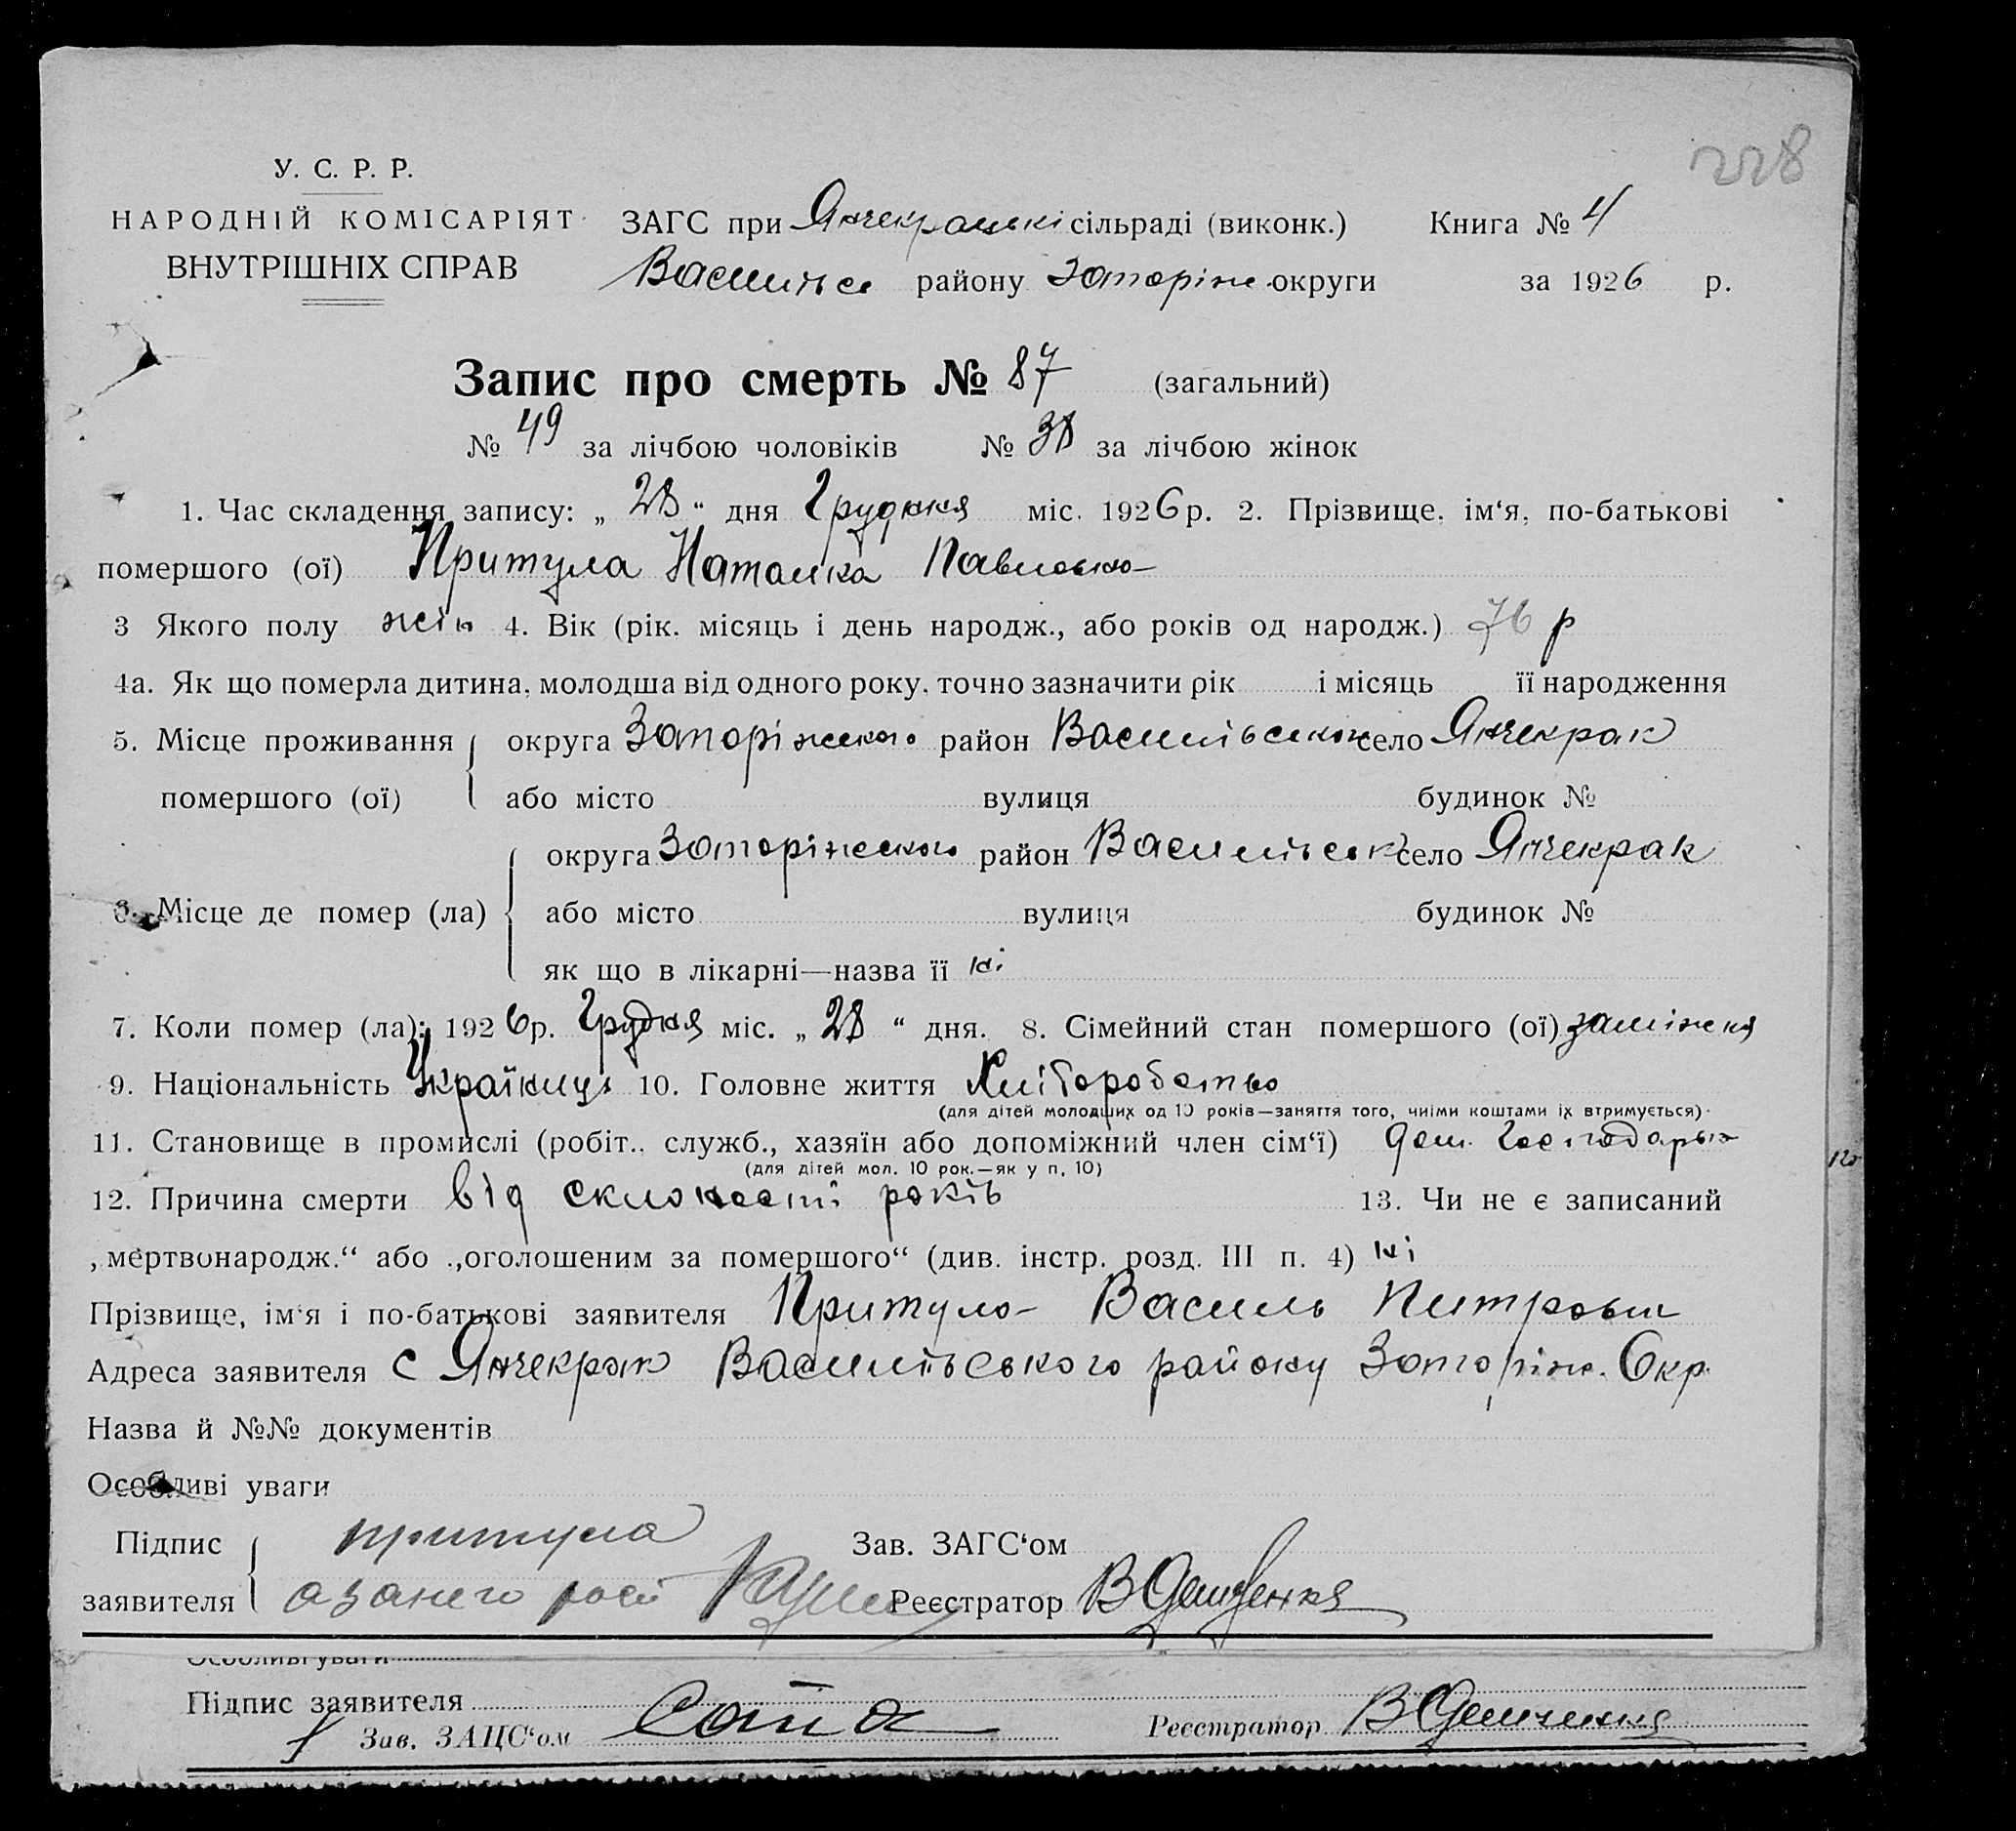 228
У. С. Р. Р.
НАРОДНІЙ КОМІСАРІЯТ ЗАГС при Янчекрацькі сільраді (виконк.) Книга № 4
ВНУТРІШНІХ СПРАВ Васильсь району Запоріж округи за 1926 р.
Запис про смерть № 87 (загальний)
№ 49 за лічбою чоловіків № 38 за лічбою жінок
1. Час складення запису: „ 28 “ дня Грудня міс. 1926 р. 2. Прізвище, ім‘я, по-батькові
помершого (ої) Притула Наталка Павловна
3 Якого полу жін 4. Вік (рік. місяць і день народж., або років од народж.) 76 р
4а. Як що померла дитина, молодша від одного року, точно зазначити рік і місяць її народження
5. Місце проживання округа Запоріжского район Васильського село Янчекрак
помершого (ої) або місто вулиця будинок №
округа Запоріжского район Васильськ село Янчекрак
6. Місце де помер (ла) або місто вулиця будинок №
як що в лікарні—назва її ні
7. Коли помер (ла): 1926 р. Грудня міс. „ 28 “ дня. 8. Сімейний стан помершого (ої) заміжня
9. Національність Українця 10. Головне життя Хліборобство
(для дітей молодших од 10 років—заняття того, чиїми коштами їх втримується)
11. Становище в промислі (робіт., служб., хазяїн або допоміжний член сім‘ї) дом. Господарка
(для дітей мол. 10 рок.—як у п. 10)
12. Причина смерти від склоності років 13. Чи не є записаний
„мертвонародж.“ або „оголошеним за помершого“ (див. інстр. розд. III п. 4) ні
Прізвище, ім‘я і по-батькові заявителя Притула Василь Питрович
Адреса заявителя с Янчекрак Васильського району Запоріж. Окр.
Назва й №№ документів
Особливі уваги
Підпис притула Зав. ЗАГС‘ом
заявителя Реєстратор В Демченко
Особливі уваги
Підпис заявителя
Зав. ЗАЦС‘ом Реєстратор В Демченко